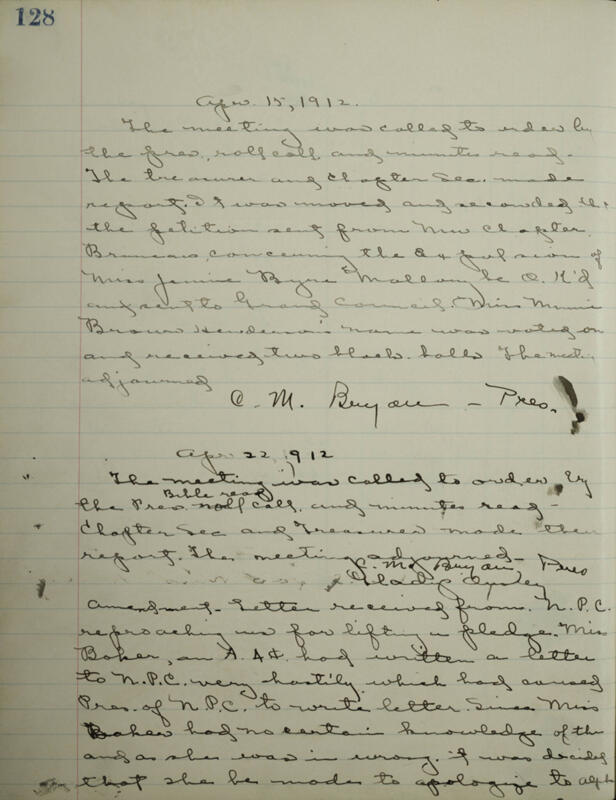 128
Apr. 15, 1912.
The meeting was called to order by
the pres., roll call, and minutes read.
The treasurer and Chapter Sec. made
report. It was moved and seconded
the petition sent from Nu Chapter,
concerning the expulsion of
Miss Byrd be O.K'd
and sent to Grand Council. Miss
Brown Henderson's name was voted on
and received two black balls. The meeting
adjourned
C. M. Bryan - Pres.
Apr. 22, 1912
The meeting was called to order by
Bible read
the Pres. roll call, and minutes read -
Chapter Sec and Treasurer made their
report. The meeting adjourned -
C. M. Bryan Pres
Gladys
amendment - Letter received from N.P.C.
reproaching us for lifting a pledge. Miss
Baker, an had written a letter
to N.P.C. very hastily which had caused
Pres. of N.P.C. to write letter. Since Miss
Baker had no certain knowledge of this
and as she was in wrong, it was decided
that she be made to apologize to